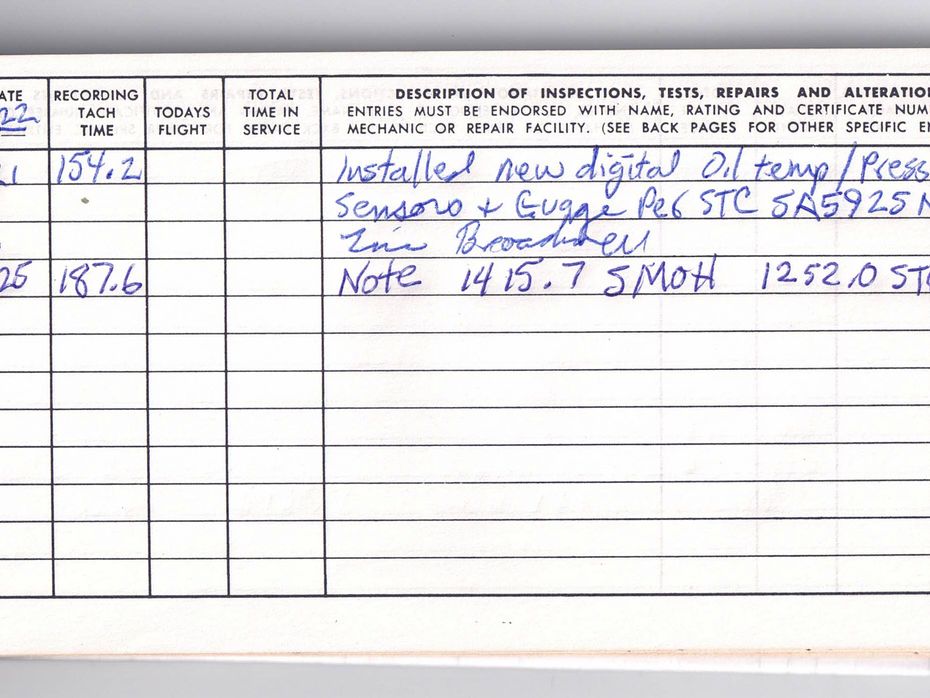 ATE RECORDING TACH TIME TODAYS FLIGHT TOTAL TIME IN SERVICE
DESCRIPTION OF INSPECTIONS, TESTS, REPAIRS AND ALTERATION
ENTRIES MUST BE ENDORSED WITH NAME, RATING AND CERTIFICATE NUM
MECHANIC OR REPAIR FACILITY. (SEE BACK PAGES FOR OTHER SPECIFIC EN
22
154.2 Installed new digital Oil temp/Press
Sensors + Gugge Per STC SA5925N
25 187.6 Note 1415.7 SMOH 1252.0 STO